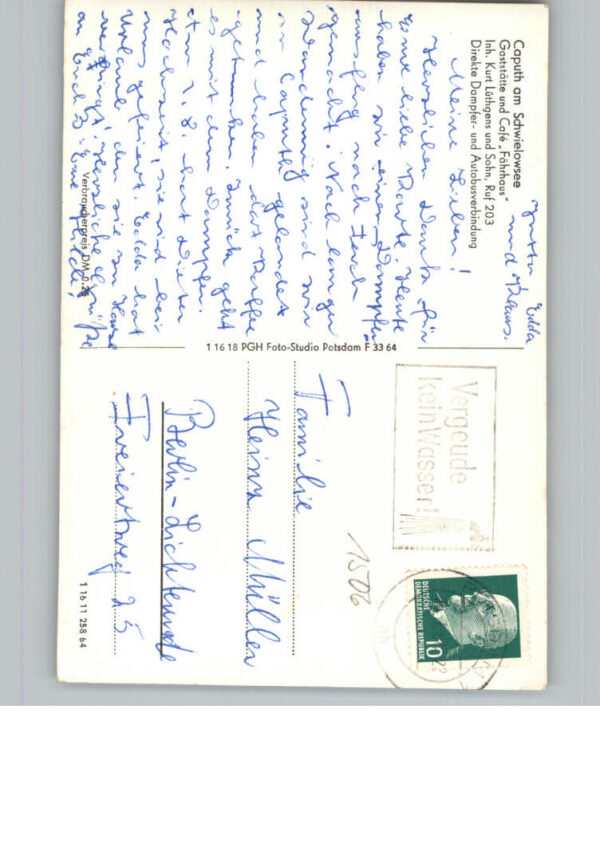 Caputh am Schwielowsee
Gaststätte und Café „Fährhaus"
Inh. Kurt Lüthgens und Sohn, Ruf 203
Direkte Dampfer- und Autobusverbindung
Meine Lieben!
Herzlichen Dank für
Eure liebe Karte. Heute
haben wir einen Dampfer
ausflug nach Ferch
gemacht. Nach langer
Wanderung sind wir
in Caputh gelandet
und haben dort Kaffee
getrunken. Zurück geht
es mit dem Dampfer.
Am 1. 8. hat Dieter
Hochzeit, sie wird bei
uns gefeiert. Edda hat
Urlaub den sie zu Hause
verbringt. Herzliche Grüße
an Euch 3. Eure
Edda
und Klaus.
Verbraucherpreis DM 0,25
1 16 18 PGH Foto-Studio Potsdam F 33 64
Vergeude
kein Wasser!
DEUTSCHE
DEMOKRATISCHE REPUBLIK
10
1506
Familie
Heinz Müller
Berlin-Lichtenrade
25
1 16 11 258 64